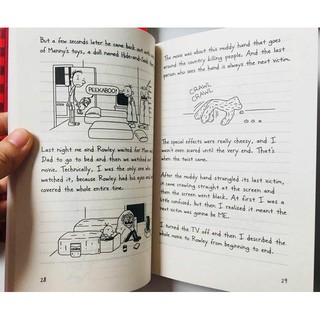 But a few seconds later he came back out with one
of Manny's toys, a doll named Hide-and-Seek
PEEKABOO!
Last night me and Rowley waited for Mom and
Dad to go to bed and then we watched the
movie. Technically, I was the only one who
watched it, because Rowley had his eyes
covered the whole entire time.
28
The movie was about this muddy hand that goes
around the country killing people. And the last
person who sees the hand is always the next victim.
CRAWL
CRAWL
The special effects were really cheesy, and I
wasn't even scared until the very end. That's
when the twist came.
After the muddy hand strangled its last victim,
it came crawling straight at the screen and
then the screen went black. At first I was a
little confused, but then I realized it meant the
next victim was gonna be ME.
I turned the TV off and then I described the
whole movie to Rowley from beginning to end.
29